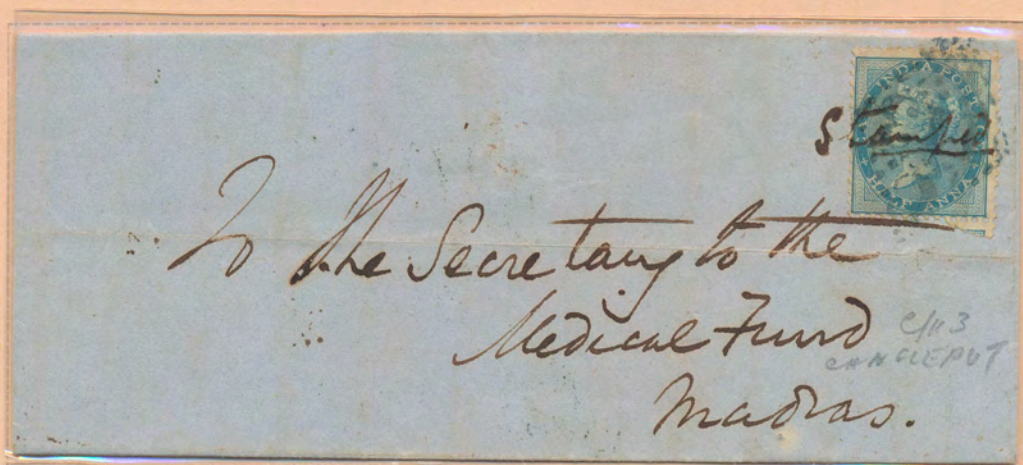 INDIA POSTAGE
HALF ANNA
Stamped
To The Secretary to the
Medical Fund
Madras.
C/113
CHINGLEPUT